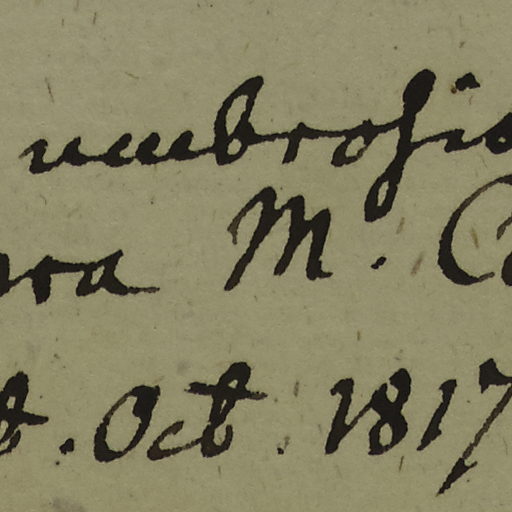 umbrosis
ora M. C
t. Oct. 1817